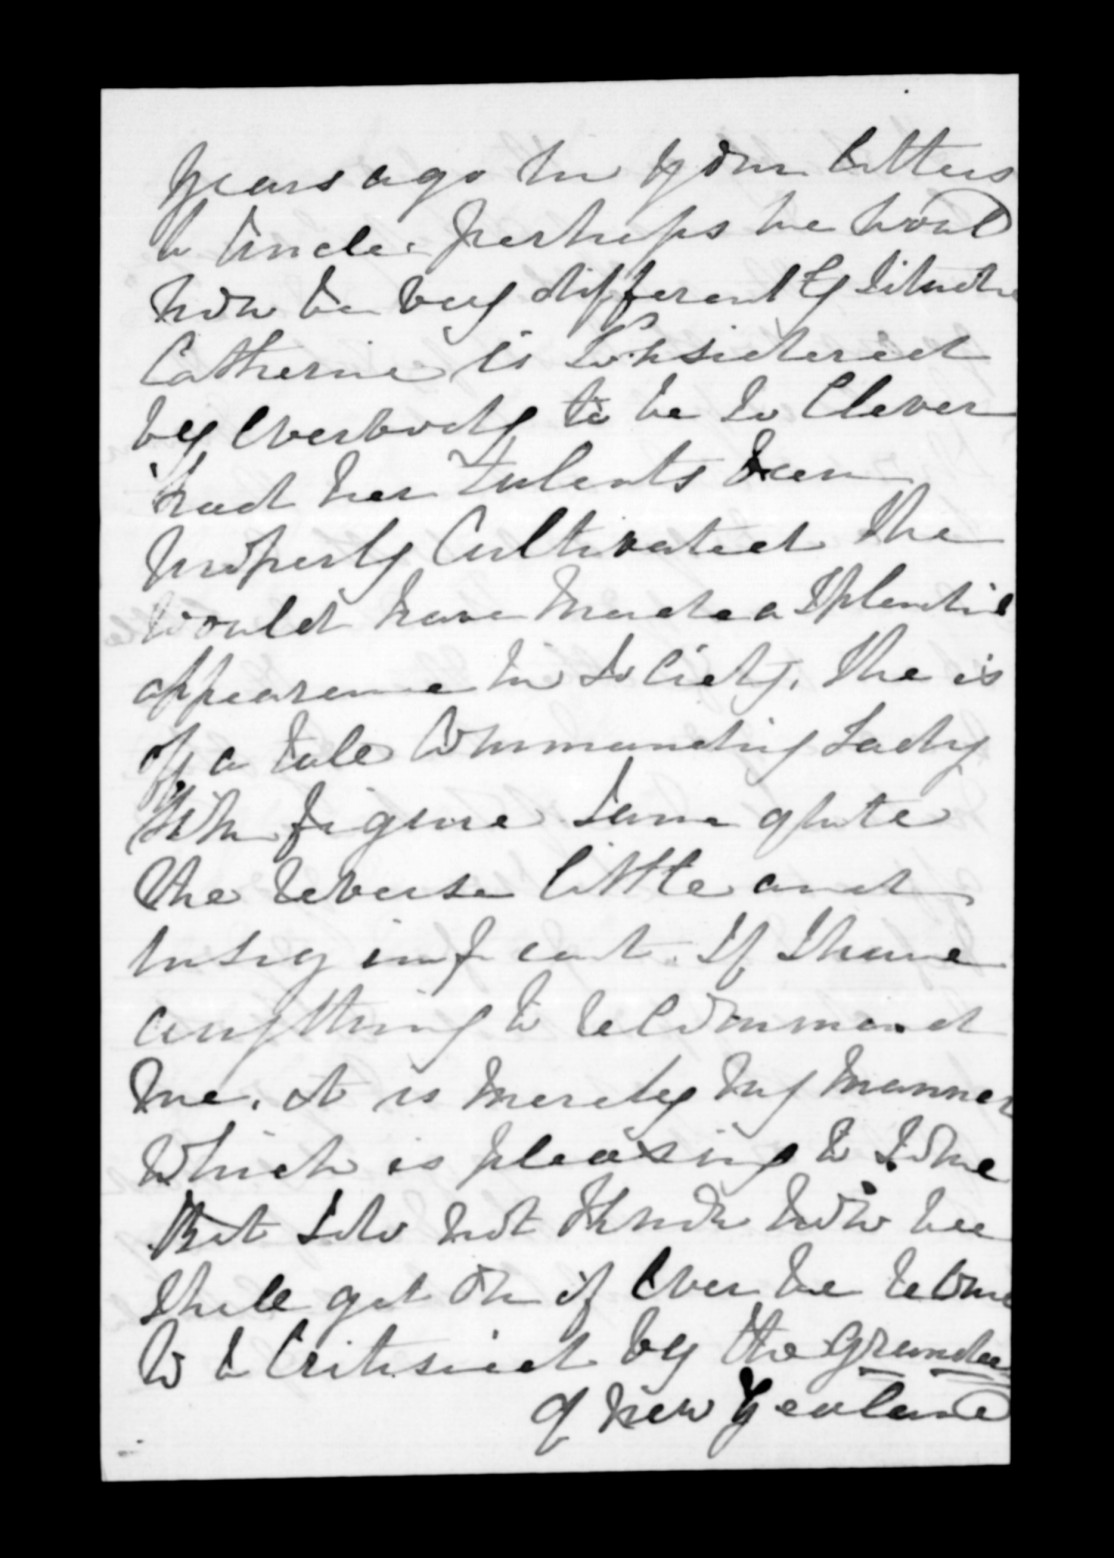 years ago in your letters
to Uncle. perhaps we would
now be very differently
Catherine is considered
by everbody to be so clever
had her talents been
properly cultivated She
would have made a splendid
appearance in society. She is
of a tale commanding Lady
like figure I am quite
the reverse little and
insignificant. If I have
anything to recommend
me. it is merely my manner
which is pleasing to some
But I do not know how we
shall get on if ever we
to be critisised by the grandees
of New Zealand